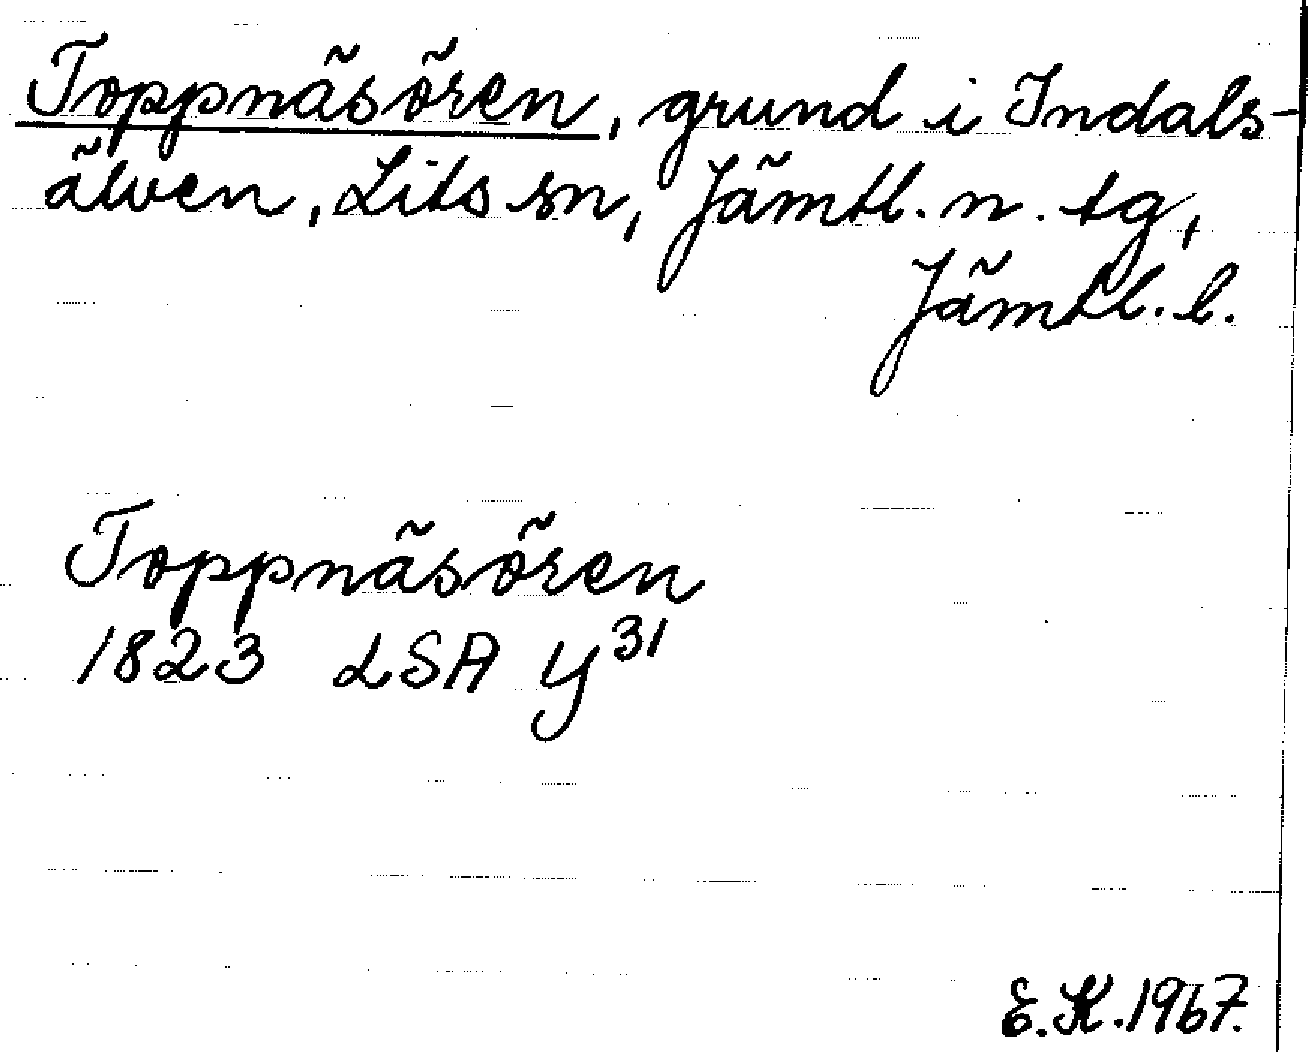 Toppnäsören, grund i Indals-
älven, Lits sn, Jämtl. n. tg,
Jämtl. l.
Toppnäsören
1823 LSA Y³¹
E.K.1967.